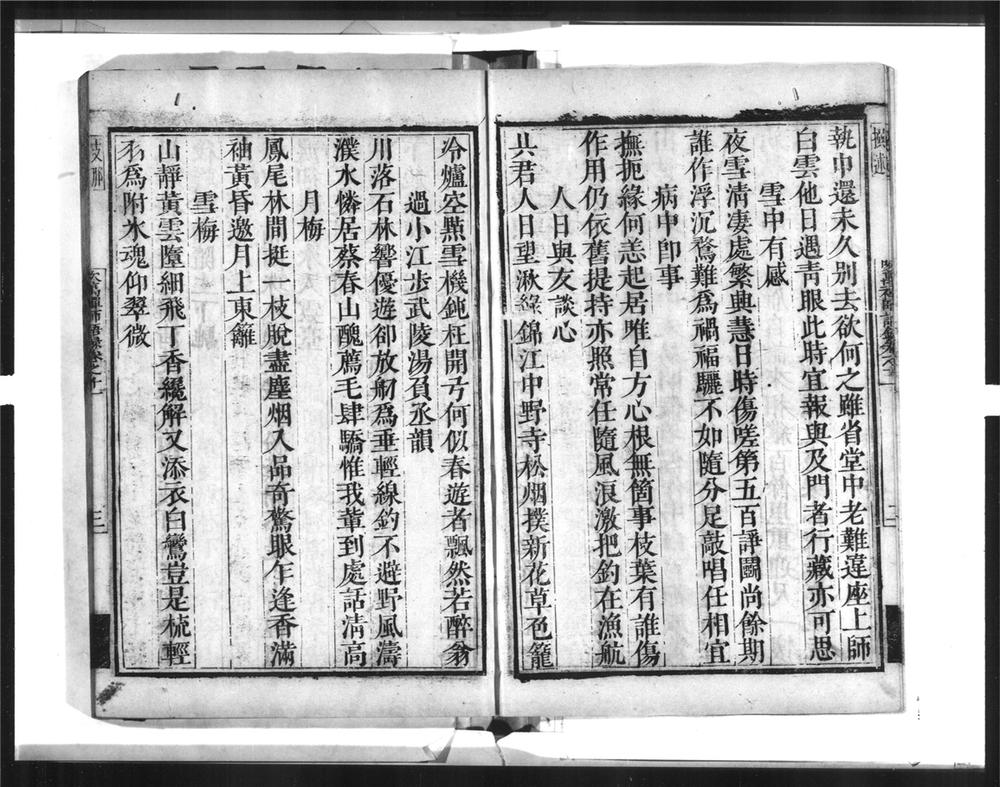 執巾還未久別去欲何之雖省堂中老難違座上師
白雲他日遇青眼此時宜報與及門者行藏亦可思
雪中有感
夜雪清凄處繁興慧日時傷嗟第五百諍鬬尚餘期
誰作浮沉鶩難為禍福驪不如隨分足敲唱任相宜
病中即事
撫扼緣何恙起居唯自方心根無箇事枝葉有誰傷
作用仍依舊提持亦照常任隨風浪激把釣在漁航
人日與友談心
共君人日望湫綠錦江中野寺松烟撲新花草色籠
冷爐空㸃雪機鈍枉開弓何似春遊者飄然若醉翁
過小江步武陵湯貟丞韻
川落石林響優遊卻放舠為垂輕線釣不避野風濤
濮水憐居蔡春山醜薦毛肆驕惟我輩到處話清高
月梅
鳳尾林間挺一枝脫盡塵烟入品奇驚眼乍逢香滿
袖黃昏邀月上東籬
雪梅
山靜黃雲墮細飛丁香纔解又添衣白鸞豈是梳輕
羽為附氷魂仰翠微